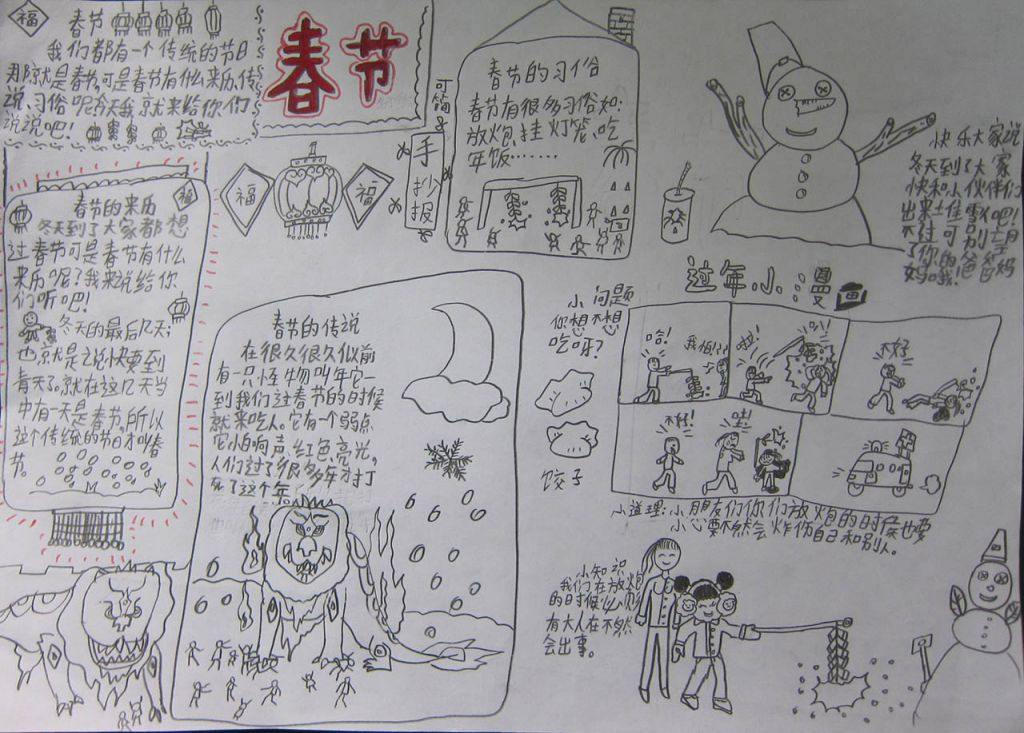 福
春节
我们都有一个传统的节日
那就是春节,可是春节有什么来历,传
说,习俗呢?今天我就来给你们
说说吧!
春节
可简
手
抄
报
福
福
春节的习俗
春节有很多习俗如:
放炮,挂灯笼,吃
年饭……
快乐大家说
冬天到了大家
快和小伙伴们
出来堆雪人吧!
不过可别
了你的爸爸妈
妈哦!
福
春节的来历
冬天到了大家都想
过春节可是春节有什么
来历呢?我来说给你
们听吧!
冬天的最后几天,
也就是说快要到
青天了。就在这几天当
中有一天是春节,所以
这个传统的节日才叫春
节。
春节的传说
在很久很久似前
有一只怪物叫年它一
到我们过春节的时候
就来吃人。它有一个弱点
它怕响声,红色,亮光,
人们过了很多年才打
死了这个年。
小问题
你想不想
吃呀?
饺子
过年小漫画
哈!
我怕!!
啦!
不好
不好!
哇!
小道理:小朋友们你们放炮的时候也要
小心要不然会炸伤自己和别人。
小知识
我们在放炮
的时候必须
有大人在不然
会出事。